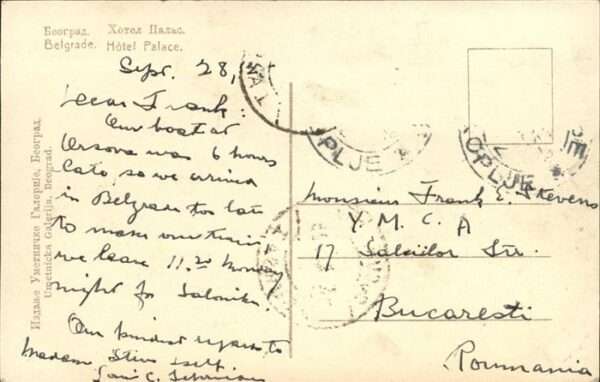 Београд. Хотел Палас.
Belgrade. Hôtel Palace.
Sept. 28,
Dear Frank:
Our boat at
Orsova was 6 hours
late, so we arrived
in Belgrade too late
to make our train
we leave 11.20 Monday
night for Salonika
Our kindest regards to
Madam and self
Издање Уметничке Галерије, Београд.
Umetnička Galerija, Beograd.
OPLJE
OPLJE
Monsieur Frank E. Stevens
Y. M. C. A
17 Str.
Bucaresti
Roumania